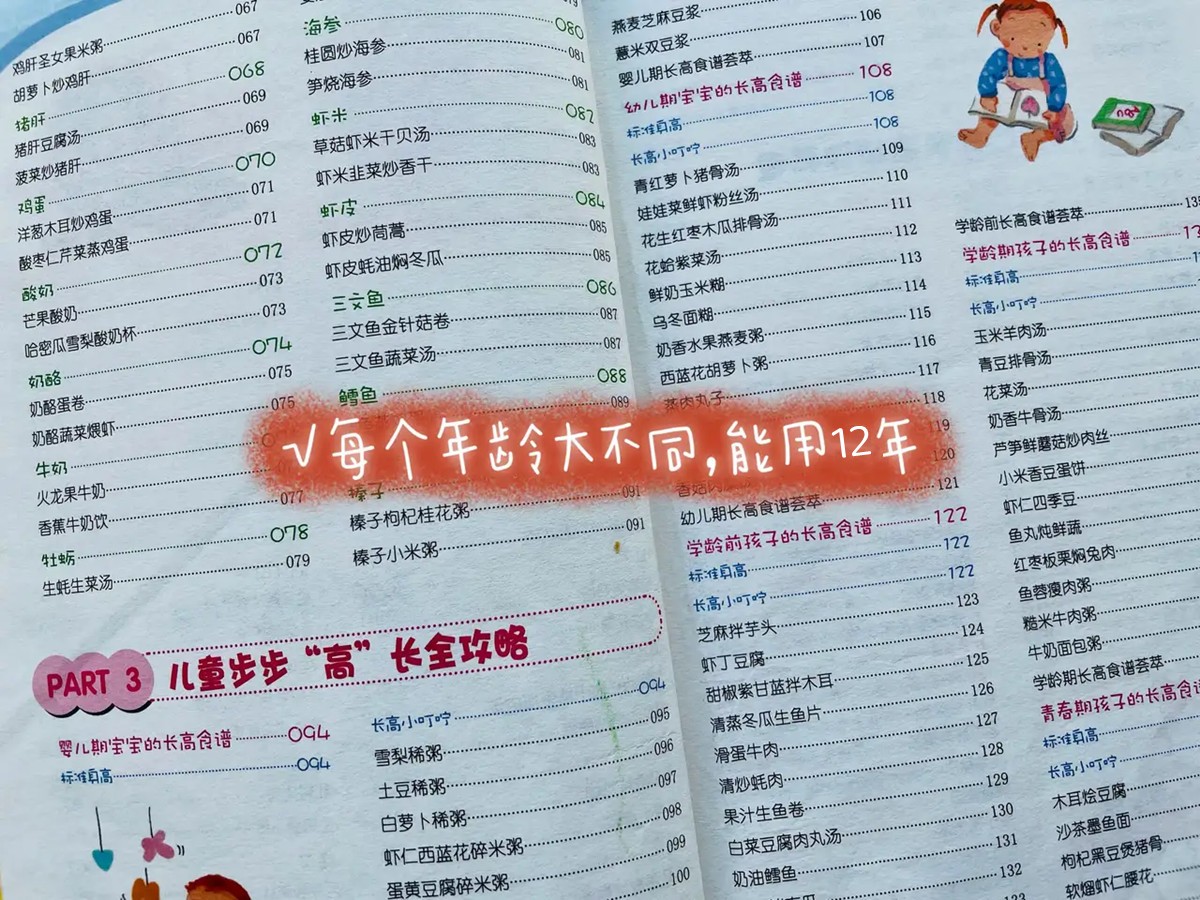 鸡肝圣女果米粥 067
胡萝卜炒鸡肝 067
猪肝 068
猪肝豆腐汤 069
菠菜炒猪肝 069
鸡蛋 070
洋葱木耳炒鸡蛋 071
酸枣仁芹菜蒸鸡蛋 071
酸奶 072
芒果酸奶 073
哈密瓜雪梨酸奶杯 073
奶酪 074
奶酪蛋卷 075
奶酪蔬菜煨虾 075
牛奶
火龙果牛奶
香蕉牛奶饮 077
牡蛎 078
生蚝生菜汤 079
海参 080
桂圆炒海参 081
笋烧海参 081
虾米 082
草菇虾米干贝汤 083
虾米韭菜炒香干 083
虾皮 084
虾皮炒茼蒿 085
虾皮蚝油焖冬瓜 085
三文鱼 086
三文鱼金针菇卷 087
三文鱼蔬菜汤 087
鳕鱼 088
089
榛子
榛子枸杞桂花粥 091
榛子小米粥 091
√每个年龄大不同,能用12年
PART 3 儿童步步“高”长全攻略
婴儿期宝宝的长高食谱 094
标准身高 094
长高小叮咛 094
雪梨稀粥 095
土豆稀粥 096
白萝卜稀粥 097
虾仁西蓝花碎米粥 098
蛋黄豆腐碎米粥 099
100
燕麦芝麻豆浆
薏米双豆浆 106
婴儿期长高食谱荟萃 107
幼儿期宝宝的长高食谱 108
标准身高 108
长高小叮咛 108
青红萝卜猪骨汤 109
娃娃菜鲜虾粉丝汤 110
花生红枣木瓜排骨汤 111
花蛤紫菜汤 112
鲜奶玉米糊 113
乌冬面糊 114
奶香水果燕麦粥 115
西蓝花胡萝卜粥 116
蒸肉丸子 117
118
119
120
幼儿期长高食谱荟萃 121
学龄前孩子的长高食谱 122
标准身高 122
长高小叮咛 122
芝麻拌芋头 123
虾丁豆腐 124
甜椒紫甘蓝拌木耳 125
清蒸冬瓜生鱼片 126
滑蛋牛肉 127
清炒蚝肉 128
果汁生鱼卷 129
白菜豆腐肉丸汤 130
奶油鳕鱼 131
132
学龄前长高食谱荟萃
学龄期孩子的长高食谱
标准身高
长高小叮咛
玉米羊肉汤
青豆排骨汤
花菜汤
奶香牛骨汤
芦笋鲜蘑菇炒肉丝
小米香豆蛋饼
虾仁四季豆
鱼丸炖鲜蔬
红枣板栗焖兔肉
鱼蓉瘦肉粥
糙米牛肉粥
牛奶面包粥
学龄期长高食谱荟萃
青春期孩子的长高食
标准身高
长高小叮咛
木耳烩豆腐
沙茶墨鱼面
枸杞黑豆煲猪骨
软熘虾仁腰花